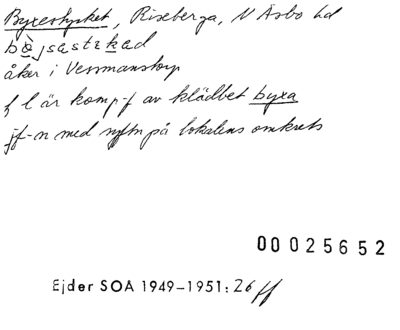 Byxestycket, Riseberga, N Åsbo hd
bòjsastekad
åker i Vessmanstorp
f l är komp-f av klädbet byxa
jf-n med syftn på lokalens omkrets
00 025652
Ejder SOA 1949-1951: 26 ff